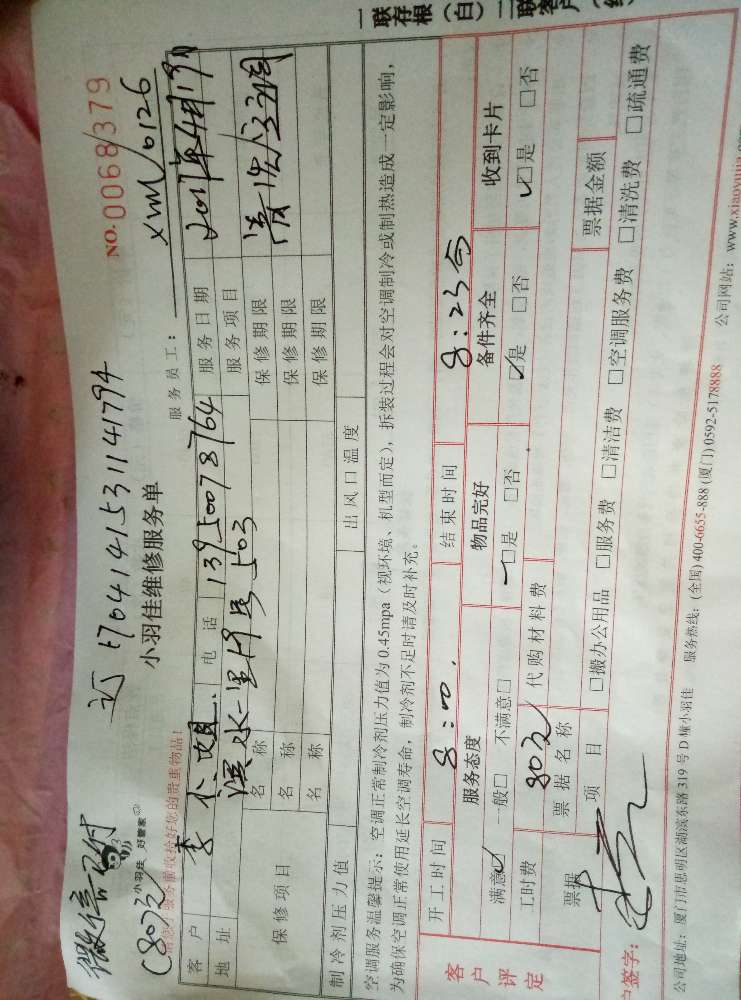 一联存根（白）二联客户
NO.0068379
微信已付
C80元
小羽佳 好管家
170414153114179
小羽佳维修服务单
服务员工：
XM1/0126
请您于服务前收拾好您的贵重物品！
客户
电话 13950078764
服务日期 2017年4月19日
地址 滨水一里19号503
服务项目 清洗空调
保修项目
名称 保修期限
名称 保修期限
名称 保修期限
制冷剂压力值 出风口温度
空调服务温馨提示：空调正常制冷剂压力值为0.45mpa（视环境、机型而定），拆装过程会对空调制冷或制热造成一定影响，
为确保空调正常使用延长空调寿命，制冷剂不足时请及时补充。
客户评定
开工时间 8:00 结束时间 8:25
服务态度 物品完好 备件齐全 收到卡片
满意☑ 一般□ 不满意□ ☑是 □否 ☑是 □否 ☑是 □否
工时费 80元 代购材料费
票据 票据名称 票据金额
项目 □搬办公用品 □服务费 □清洁费 □空调服务费 □清洗费 □疏通费
签字：
公司地址：厦门市思明区湖滨东路319号D幢小羽佳 服务热线：(全国)400-6655-888 (厦门)0592-5178888 公司网站：www.xiaoyujia